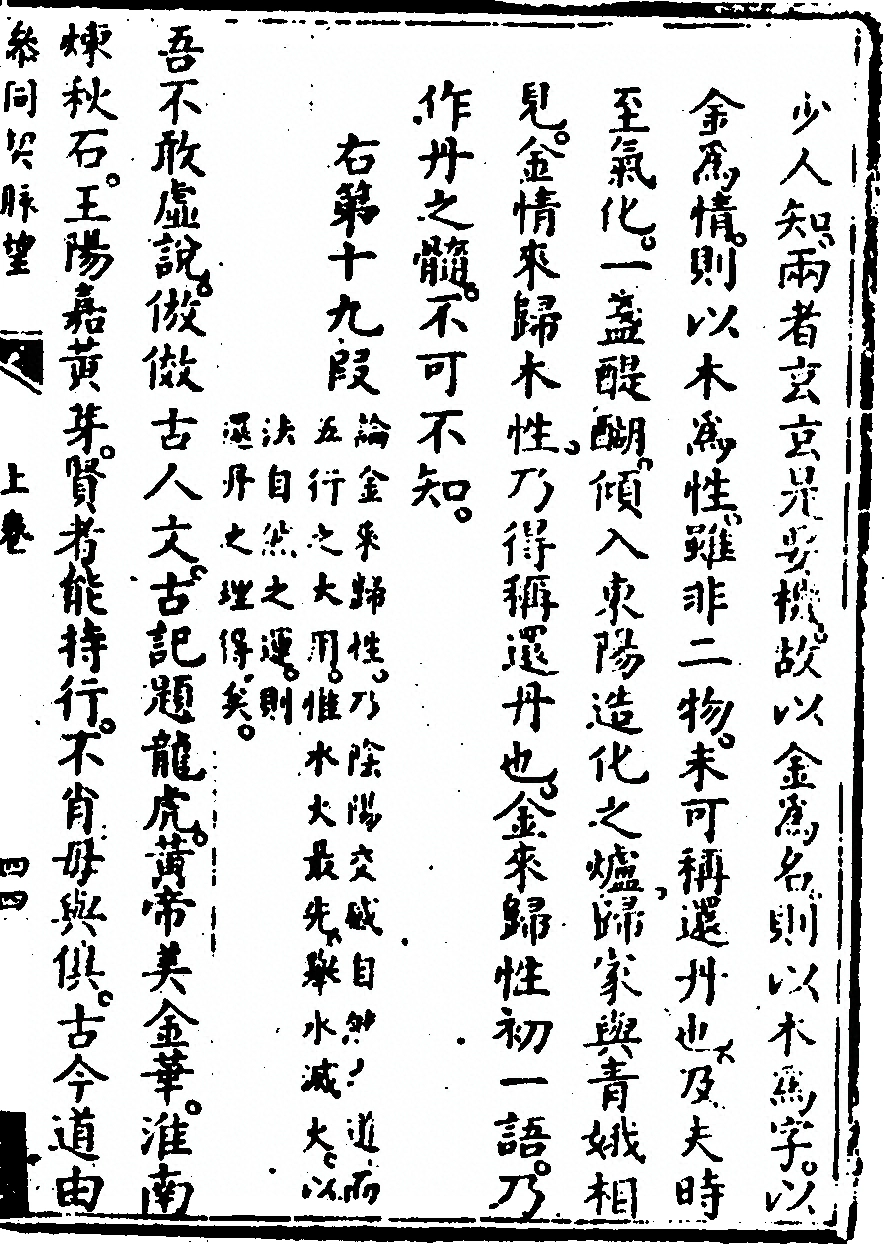 少人知兩者玄玄是要機故以金爲名則以木爲字。以
金爲情。則以木爲性。雖非二物。未可稱還丹也。及夫時
至氣化。一盞醍醐。傾入東陽造化之爐。歸家與青娥相
見。金情來歸木性。乃得稱還丹也。金來歸性初一語。乃
作丹之髓。不可不知。
右第十九段
論金來歸性。乃陰陽交感自然之道。而
五行之大用。惟水火最先。舉水滅火。以
決自然之運。則
還丹之理得矣。
吾不敢虛說。倣傚古人文。古記題龍虎。黃帝美金華。淮南
煉秋石。王陽嘉黃芽。賢者能持行。不肖毋與俱。古今道由
參同契脉望
上卷
四四